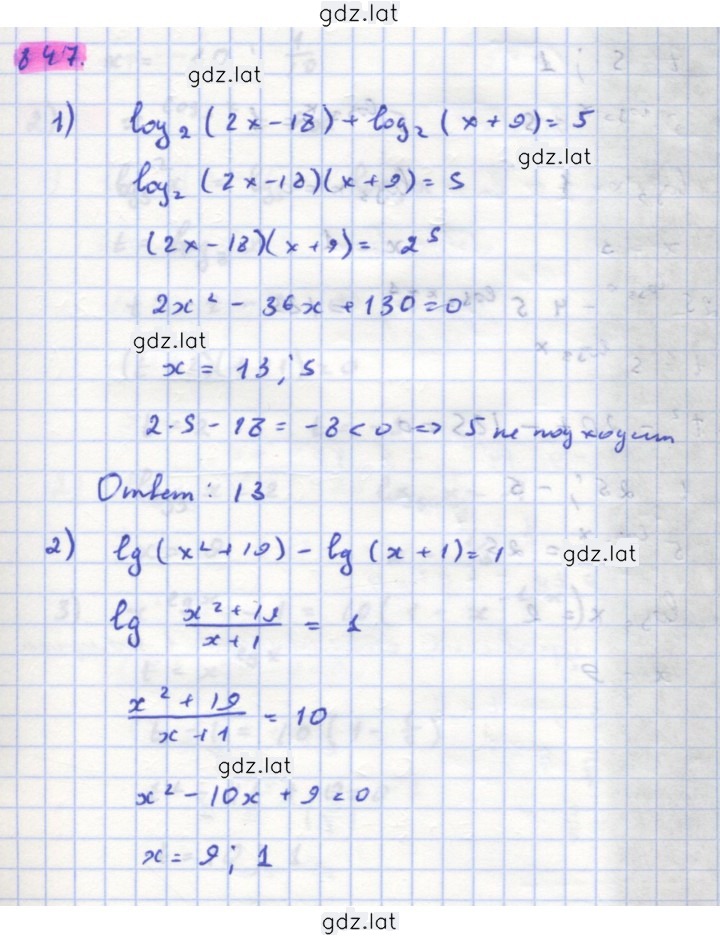 gdz.lat
847.
gdz.lat
1) log₂ (2x-18) + log₂ (x+9) = 5
gdz.lat
log₂ (2x-18)(x+9) = 5
(2x-18)(x+9) = 2⁵
2x² - 36x + 130 = 0
gdz.lat
x = 13; 5
2·5 - 18 = -8 < 0 => 5 не подходит
Ответ: 13
2) lg (x²+19) - lg (x+1) = 1
gdz.lat
lg (x²+19)/(x+1) = 1
(x²+19)/(x+1) = 10
gdz.lat
x² - 10x + 9 = 0
x = 9; 1
gdz.lat